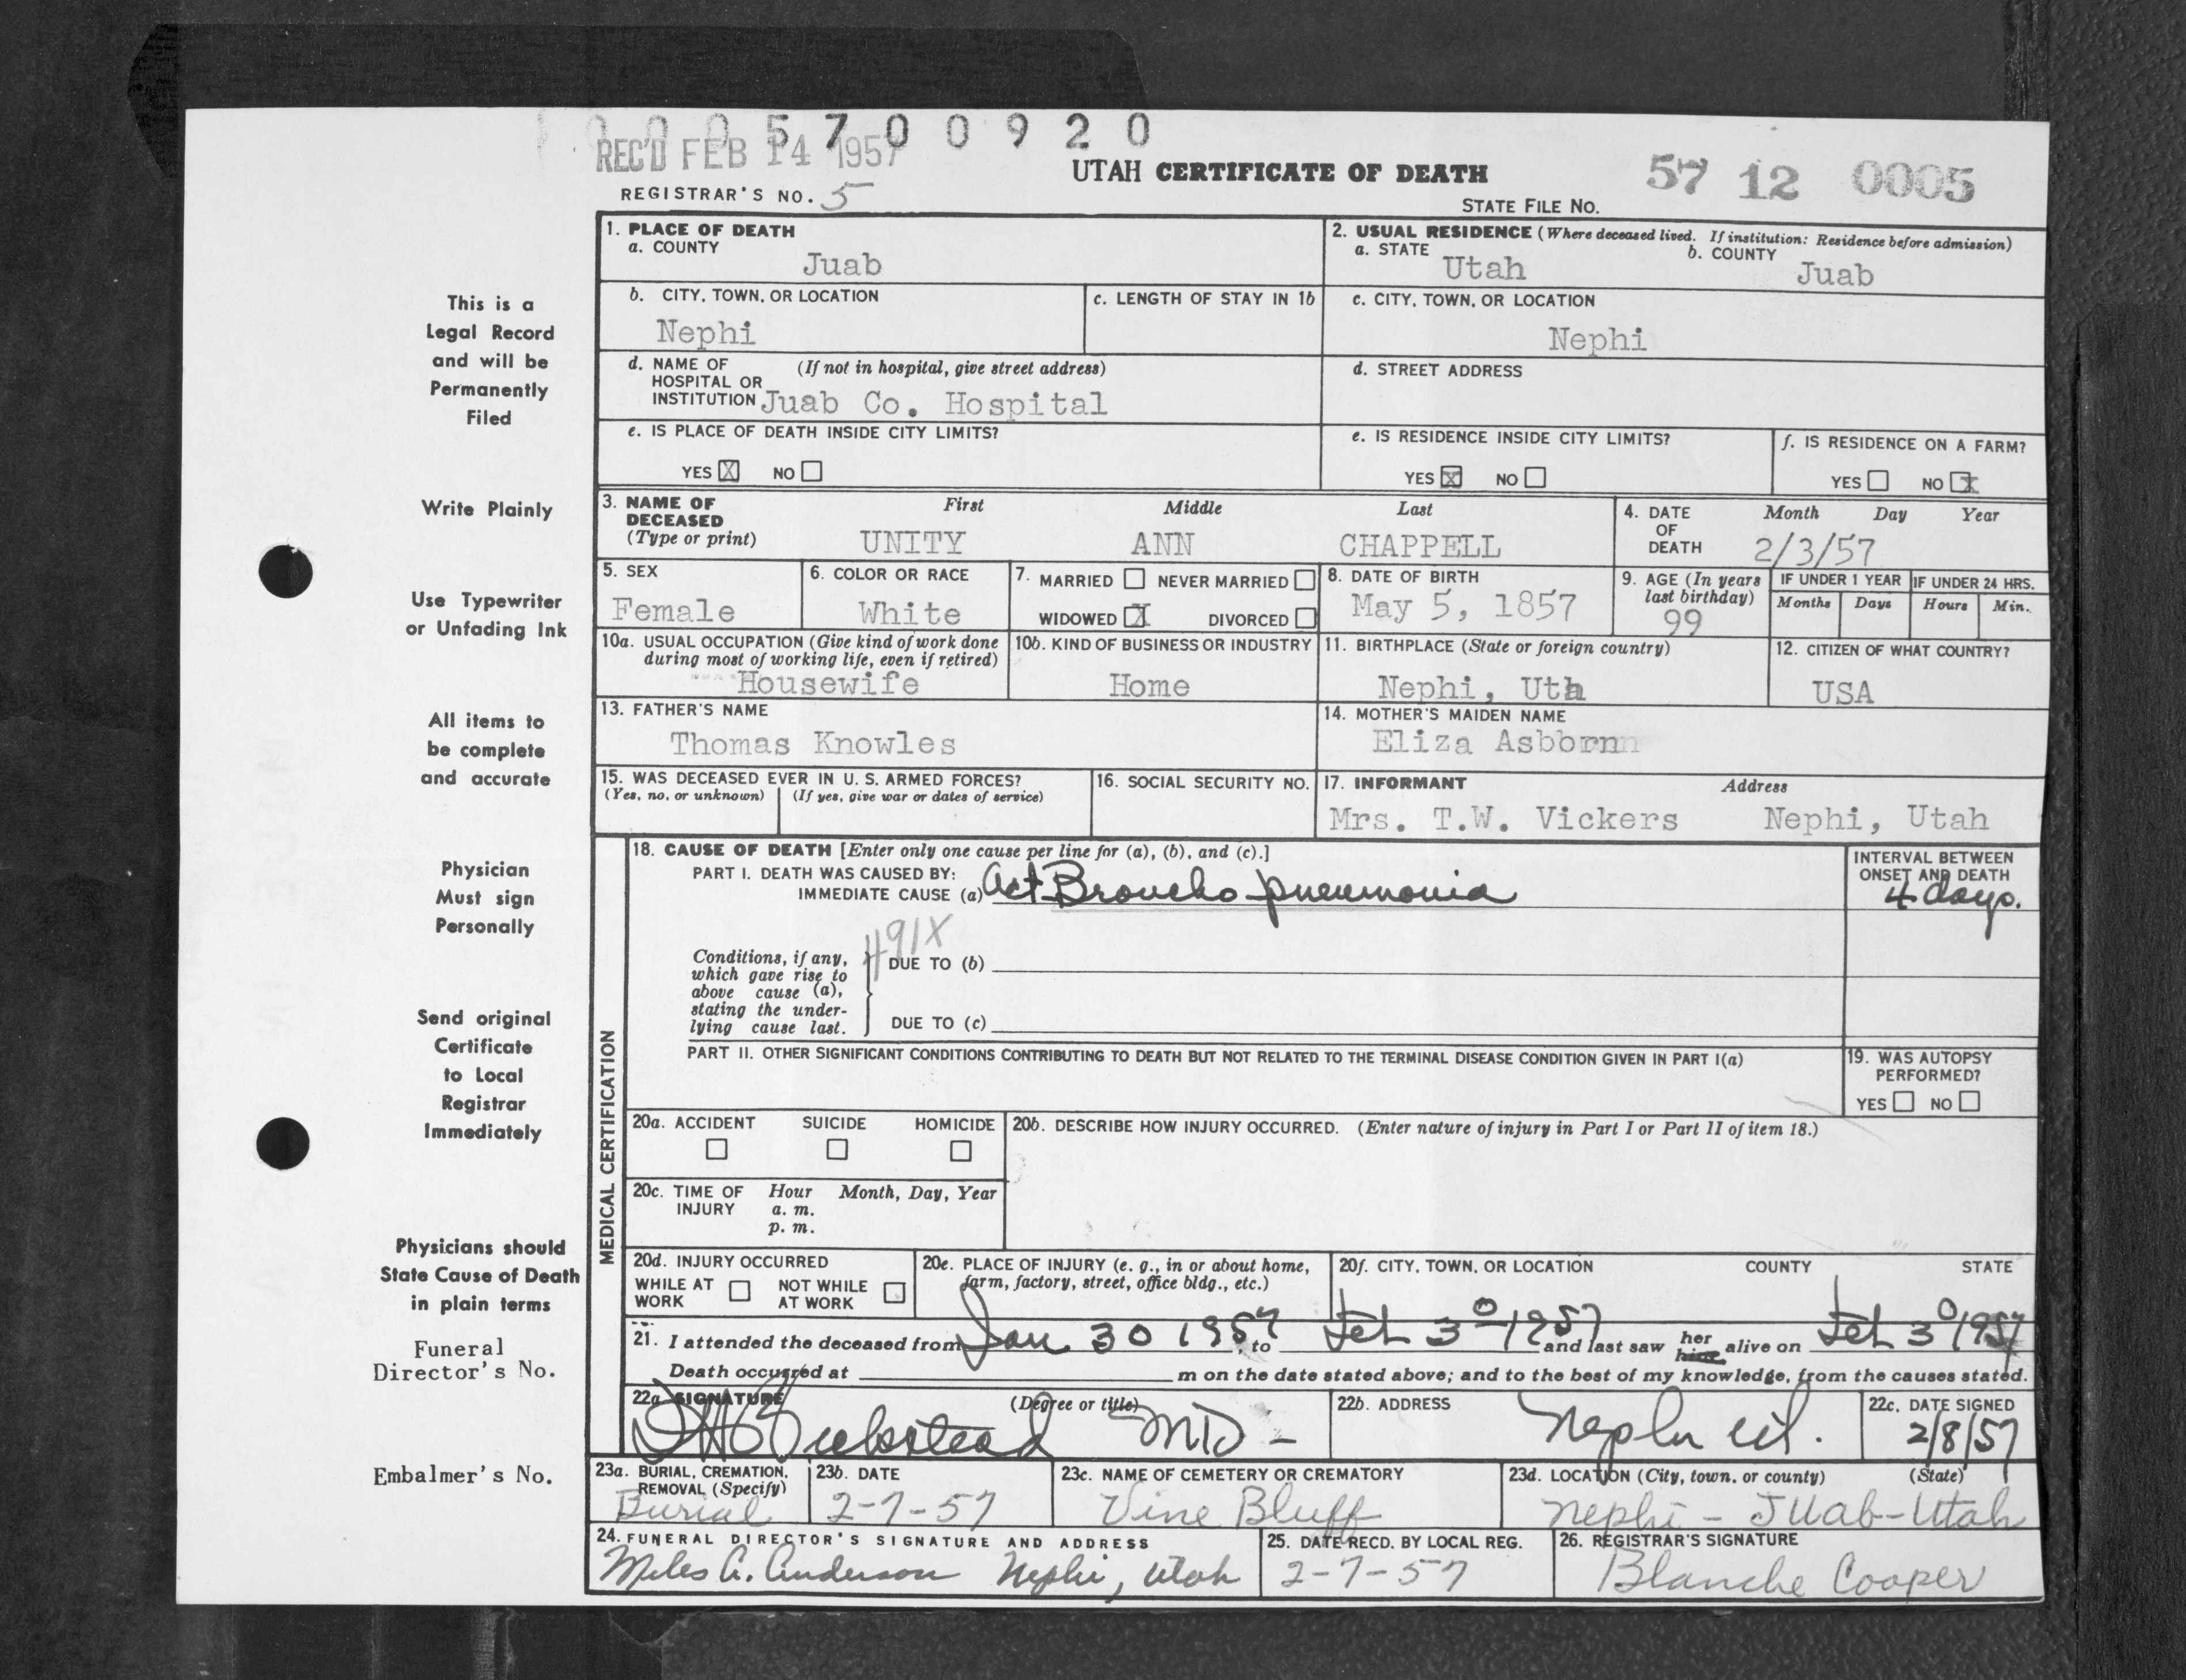 0005700920
REC'D FEB 14 1957
UTAH CERTIFICATE OF DEATH
57 12 0005
REGISTRAR'S NO. 5
STATE FILE NO.
1. PLACE OF DEATH
a. COUNTY
Juab
2. USUAL RESIDENCE (Where deceased lived. If institution: Residence before admission)
a. STATE
Utah
b. COUNTY
Juab
b. CITY, TOWN, OR LOCATION
Nephi
c. LENGTH OF STAY IN 1b
c. CITY, TOWN, OR LOCATION
Nephi
d. NAME OF HOSPITAL OR INSTITUTION
(If not in hospital, give street address)
Juab Co. Hospital
d. STREET ADDRESS
e. IS PLACE OF DEATH INSIDE CITY LIMITS?
YES X NO
e. IS RESIDENCE INSIDE CITY LIMITS?
YES X NO
f. IS RESIDENCE ON A FARM?
YES NO X
3. NAME OF DECEASED
(Type or print)
First Middle Last
UNITY ANN CHAPPELL
4. DATE OF DEATH
Month Day Year
2/3/57
5. SEX
Female
6. COLOR OR RACE
White
7. MARRIED NEVER MARRIED
WIDOWED X DIVORCED
8. DATE OF BIRTH
May 5, 1857
9. AGE (In years last birthday)
99
IF UNDER 1 YEAR
Months Days
IF UNDER 24 HRS.
Hours Min.
10a. USUAL OCCUPATION (Give kind of work done during most of working life, even if retired)
Housewife
10b. KIND OF BUSINESS OR INDUSTRY
Home
11. BIRTHPLACE (State or foreign country)
Nephi, Uth
12. CITIZEN OF WHAT COUNTRY?
USA
13. FATHER'S NAME
Thomas Knowles
14. MOTHER'S MAIDEN NAME
Eliza Asbbrnn
15. WAS DECEASED EVER IN U. S. ARMED FORCES?
(Yes, no, or unknown) (If yes, give war or dates of service)
16. SOCIAL SECURITY NO.
17. INFORMANT Address
Mrs. T.W. Vickers Nephi, Utah
MEDICAL CERTIFICATION
18. CAUSE OF DEATH [Enter only one cause per line for (a), (b), and (c).]
PART I. DEATH WAS CAUSED BY:
IMMEDIATE CAUSE (a) Act Broncho pneumonia
INTERVAL BETWEEN ONSET AND DEATH
4 days.
491X
Conditions, if any, which gave rise to above cause (a), stating the underlying cause last.
DUE TO (b)
DUE TO (c)
PART II. OTHER SIGNIFICANT CONDITIONS CONTRIBUTING TO DEATH BUT NOT RELATED TO THE TERMINAL DISEASE CONDITION GIVEN IN PART I(a)
19. WAS AUTOPSY PERFORMED?
YES NO
20a. ACCIDENT SUICIDE HOMICIDE
20b. DESCRIBE HOW INJURY OCCURRED. (Enter nature of injury in Part I or Part II of item 18.)
20c. TIME OF INJURY
Hour Month, Day, Year
a. m.
p. m.
20d. INJURY OCCURRED
WHILE AT WORK NOT WHILE AT WORK
20e. PLACE OF INJURY (e. g., in or about home, farm, factory, street, office bldg., etc.)
20f. CITY, TOWN, OR LOCATION COUNTY STATE
21. I attended the deceased from Jan 30 1957, to Feb 3 1957 and last saw her him alive on Feb 3 1957
Death occurred at m on the date stated above; and to the best of my knowledge, from the causes stated.
22a. SIGNATURE (Degree or title)
MD -
22b. ADDRESS
Nephi Ut.
22c. DATE SIGNED
2/8/57
23a. BURIAL, CREMATION, REMOVAL (Specify)
Burial
23b. DATE
2-7-57
23c. NAME OF CEMETERY OR CREMATORY
Vine Bluff
23d. LOCATION (City, town, or county) (State)
Nephi - Juab - Utah
24. FUNERAL DIRECTOR'S SIGNATURE AND ADDRESS
Miles A. Anderson Nephi, Utah
25. DATE RECD. BY LOCAL REG.
2-7-57
26. REGISTRAR'S SIGNATURE
Blanche Cooper
This is a
Legal Record
and will be
Permanently
Filed
Write Plainly
Use Typewriter
or Unfading Ink
All items to
be complete
and accurate
Physician
Must sign
Personally
Send original
Certificate
to Local
Registrar
Immediately
Physicians should
State Cause of Death
in plain terms
Funeral
Director's No.
Embalmer's No.